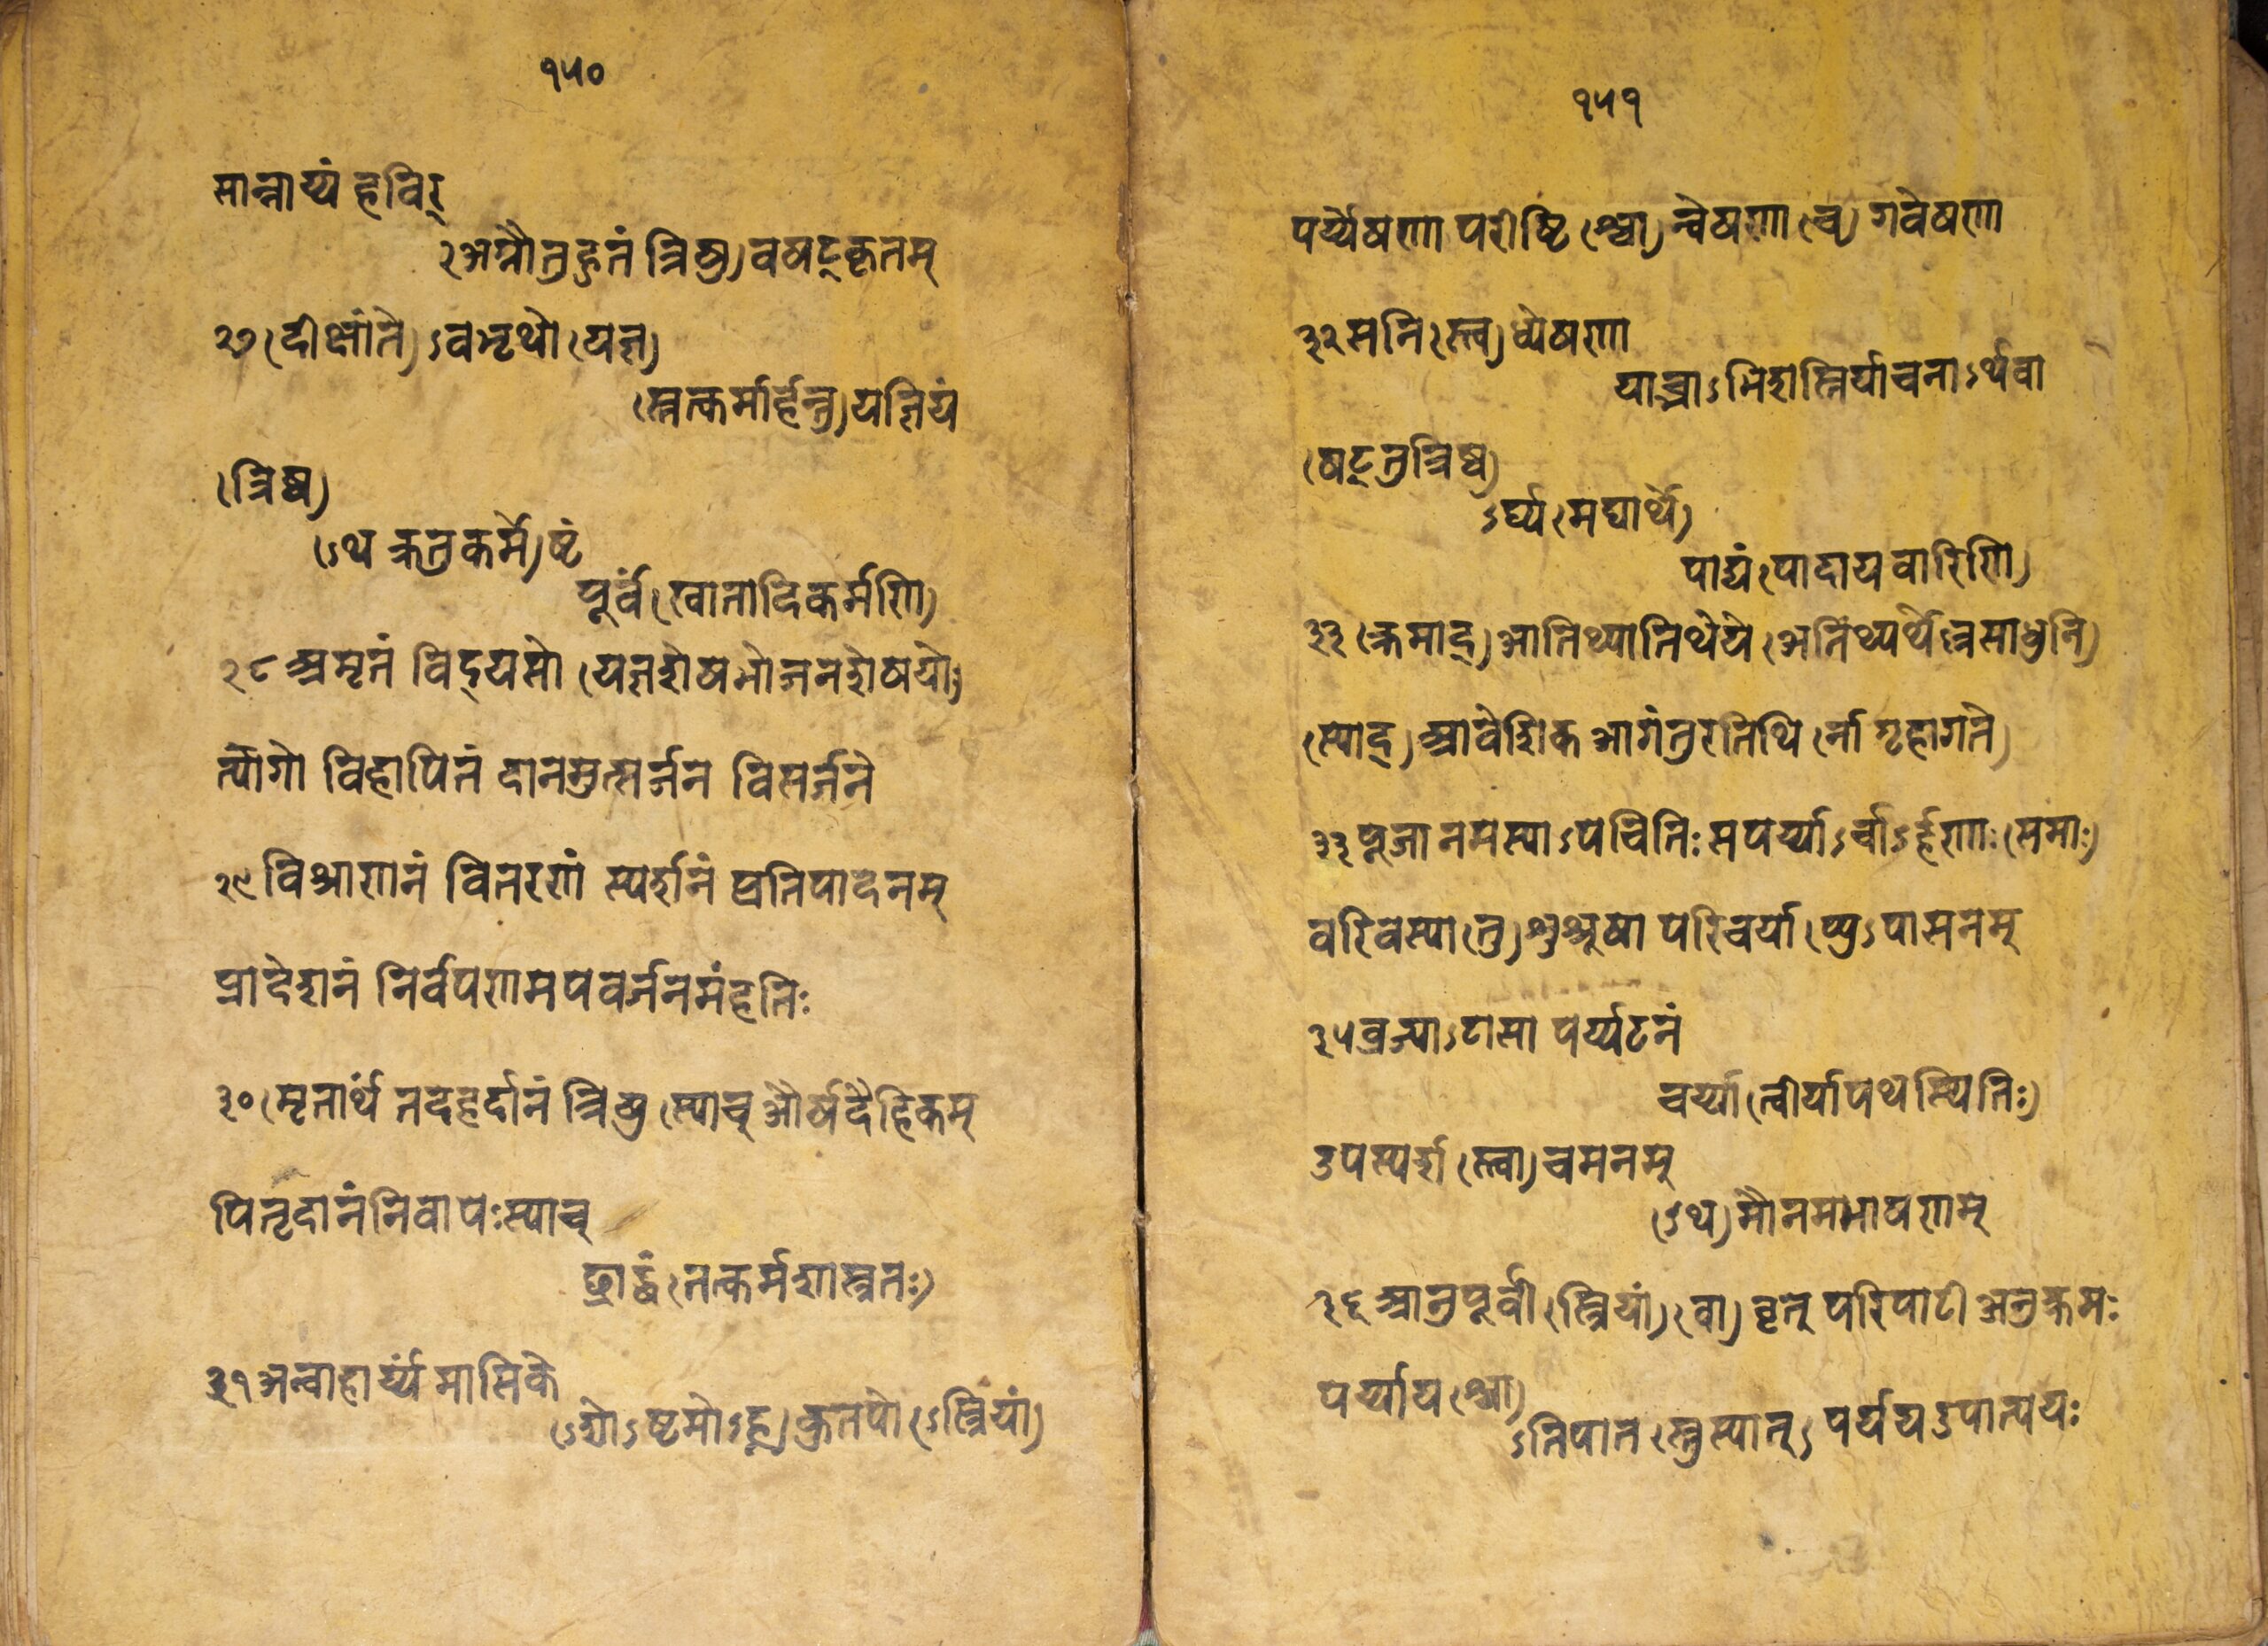 १५०
सान्नाय्यं हविर्
२अग्नौतुहुतं त्रिषु) वषट्कृतम्
२७ (दीक्षांते) ऽवभृथो (यज्ञ)
(स्तत्कर्मार्हन्तु) यज्ञियं
(त्रिष्व)
(ऽथ क्रतुकर्मे) ष्टं
पूर्वं (खातादिकर्मणि)
२८ अमृतं विद्यसो (यज्ञशेषभोजनशेषयोः)
त्यागो विहापितं दानमुत्सर्जन विसर्जने
२९ विश्राणनं वितरणं स्पर्शनं प्रतिपादनम्
प्रादेशनं निर्वपणमपवर्जनमंहतिः
३० (मृतार्थं तदहर्दानं त्रिषु (स्याच् और्ध्वदैहिकम्
पितृदानं निवापःस्याच्
छ्राद्धं (तत्कर्मशास्त्रतः)
३१ अन्वाहार्य्यं मासिके
(ऽशोऽष्टमोऽह्नः) कुतपो (ऽस्त्रियां)
१५१
पर्य्येषणा परीष्टि (श्चा) न्वेषणा (च) गवेषणा
३२ सनि (स्त्व) ध्येषणा
याच्ञाऽभिशस्तिर्याचनाऽर्थवा
(षट्तुत्रिष्व)
ऽर्घ्य (मर्घार्थे)
पाद्यं (पादायवारिणि)
३३ (क्रमाद्) आतिथ्यातिथेये (अतिथ्यर्थेत्रसाधुनि)
(स्याद्) आवेशिक आगंतुरतिथि र्ना गृहागते)
३३ पूजा नमस्याऽपचितिः सपर्य्याऽर्चाऽर्हणाः (समाः)
वरिवस्या (तु) शुश्रूषा परिचर्या (प्यु) पासनम्
३५ व्रज्याऽटासा पर्य्यटनं
चर्य्या (त्वीर्यापथस्थितिः)
उपस्पर्श (स्त्वा) चमनम्
(ऽथ) मौनमभाषणम्
३६ आनुपूर्वी (स्त्रियां) (वा) वृत् परिपाटी अनुक्रमः
पर्य्याय (श्चा)
ऽतिपात (स्तुस्यात्) पर्यय उपात्ययः